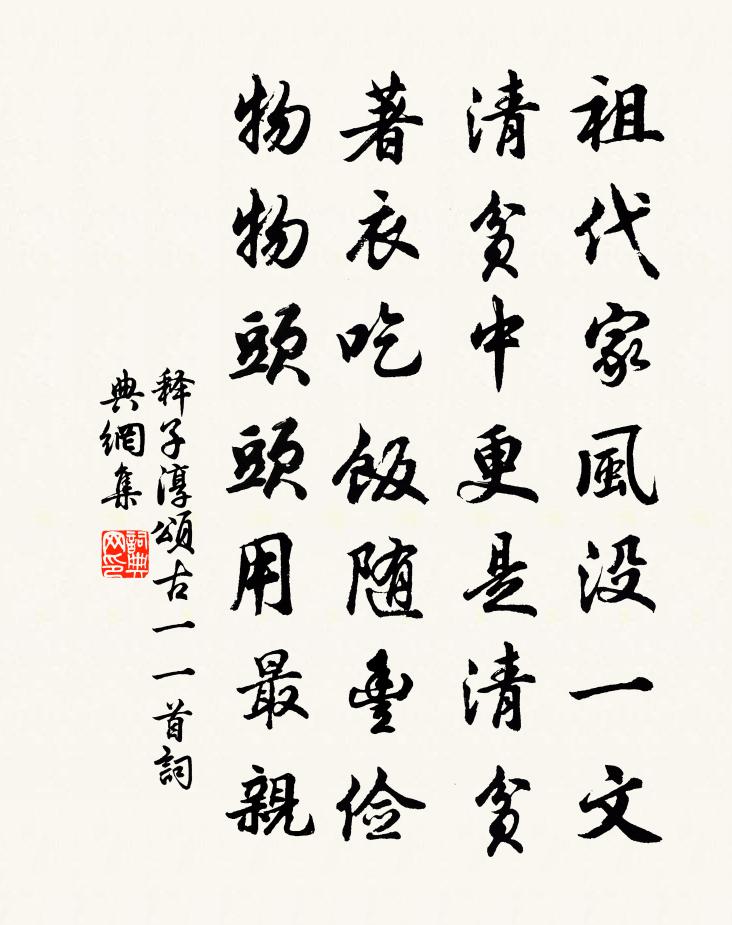 祖代家風没一文
清貧中更是清貧
著衣吃飯随豊儉
物物頭頭用最親
释子淳頌古一一首詞
典網集
詞典
网印